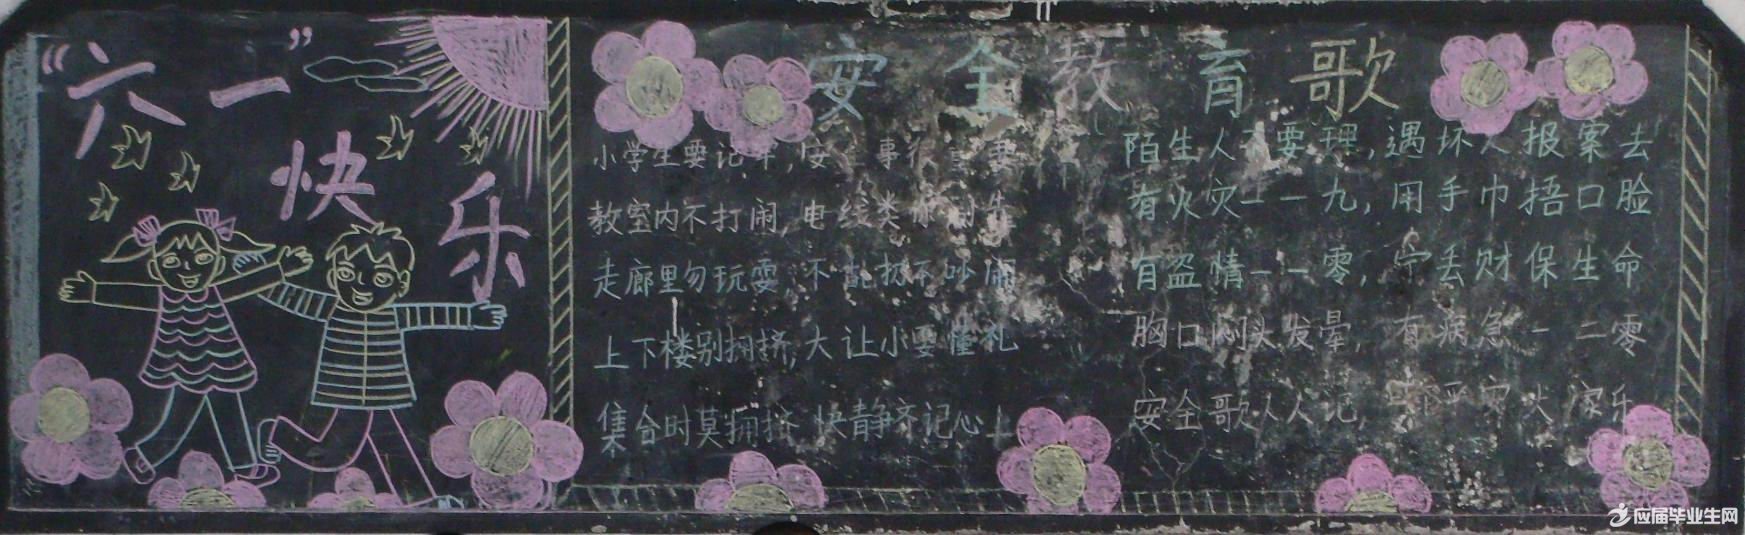 “六一”
快
乐
安全教育歌
小学生要记牢,安 事 要
教室内不打闹,电线类
走廊里勿玩耍,不乱扔不吵闹
上下楼别拥挤,大让小要懂礼
集合时莫拥挤 快静齐记心上
陌生人不要理,遇坏人报案去
有火灾一一九,用手巾捂口脸
有盗情一一零,宁丢财保生命
胸口闷头发晕,有病急一二零
安全歌人人记, 平安 家乐
应届毕业生网